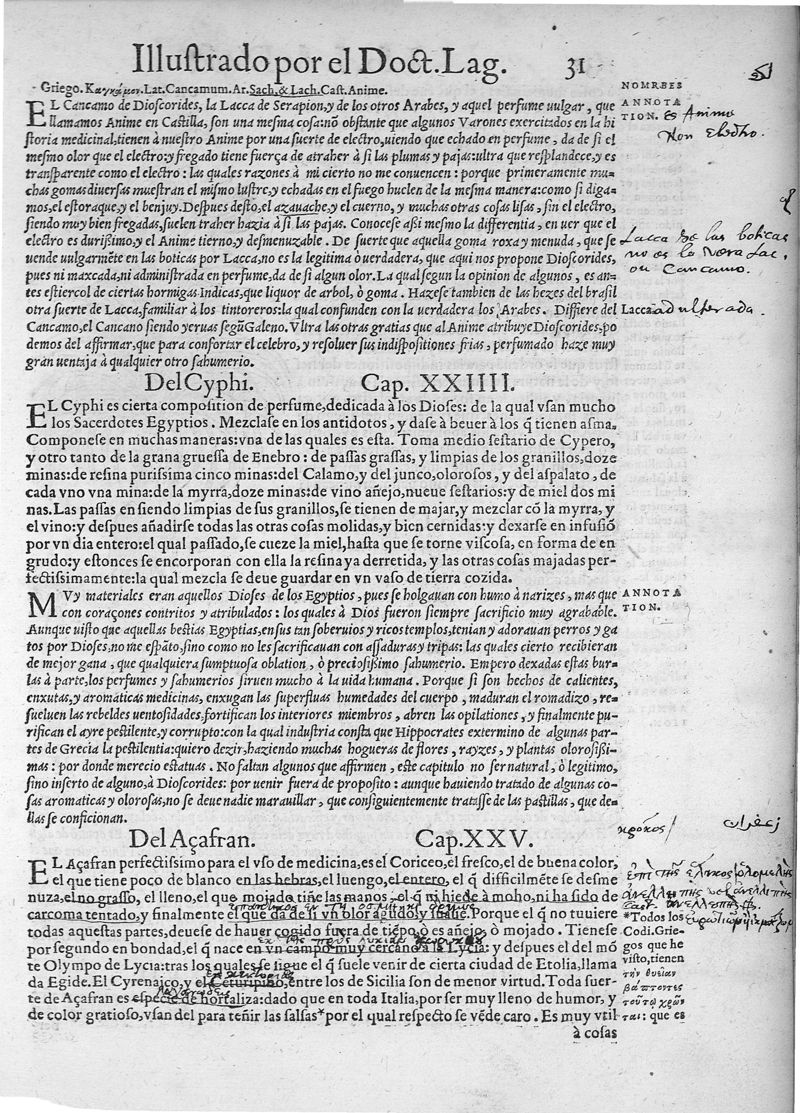 Illustrado por el Doct. Lag. 31
Griego. Καγκάμον. Lat. Cancamum. Ar. Sach, & Lach. Cast. Anime.
NOMRBES
EL Cancamo de Dioscorides, la Lacca de Serapion, y de los otros Arabes, y aquel perfume uulgar, que
ANNOTA
llamamos Anime en Castilla, son una mesma cosa: nō obstante que algunos Varones exercitados en la hi
TION.
storia medicinal, tienen à nuestro Anime por una suerte de electro, uiendo que echado en perfume, da de si el
mesmo olor que el electro: y fregado tiene fuerça de atraher à si las plumas y pajas: ultra que resplandece, y es
transparente como el electro: las quales razones à mi cierto no me conuencen: porque primeramente mu-
chas gomas diuersas muestran el mismo lustre, y echadas en el fuego huelen de la mesma manera: como si diga-
mos, el estoraque, y el benjuy. Despues desto, el azauache, y el cuerno, y muchas otras cosas lisas, sin el electro,
siendo muy bien fregadas, suelen traher hazia à si las pajas. Conocese aßi mesmo la differentia, en uer que el
electro es durißimo, y el Anime tierno, y desmenuzable. De suerte que aquella goma roxa y menuda, que se
uende uulgarmēte en las boticas por Lacca, no es la legitima ò uerdadera, que aqui nos propone Dioscorides,
Lacca de las boticas
no es la vera Lac,
ou Cancamo.
pues ni maxcada, ni administrada en perfume, da de si algun olor. La qual segun la opinion de algunos, es an-
tes estiercol de ciertas hormigas Indicas, que liquor de arbol, ò goma. Hazese tambien de las hezes del brasil
otra suerte de Lacca, familiar à los tintoreros: la qual confunden con la uerdadera los Arabes. Differe del
Lacca adulterada.
Cancamo, el Cancano siendo yeruas segū Galeno. Vltra las otras gratias que al Anime atribuye Dioscorides, po
demos del affirmar, que para confortar el celebro, y resoluer sus indispositiones frias, perfumado haze muy
gran uentaja à qualquier otro sahumerio.
Del Cyphi. Cap. XXIIII.
EL Cyphi es cierta composition de perfume, dedicada à los Dioses: de la qual vsan mucho
los Sacerdotes Egyptios. Mezclase en los antidotos, y dase à beuer à los q̄ tienen asma.
Componese en muchas maneras: vna de las quales es esta. Toma medio sestario de Cypero,
y otro tanto de la grana gruessa de Enebro: de passas grassas, y limpias de los granillos, doze
minas: de resina purissima cinco minas: del Calamo, y del junco, olorosos, y del aspalato, de
cada vno vna mina: de la myrra, doze minas: de vino añejo, nueue sestarios: y de miel dos mi
nas. Las passas en siendo limpias de sus granillos, se tienen de majar, y mezclar cō la myrra, y
el vino: y despues añadirse todas las otras cosas molidas, y bien cernidas: y dexarse en infusiō
por vn dia entero: el qual passado, se cueze la miel, hasta que se torne viscosa, en forma de en
grudo: y estonces se encorporan con ella la resina ya derretida, y las otras cosas majadas per-
fectissimamente: la qual mezcla se deue guardar en vn vaso de tierra cozida.
MVy materiales eran aquellos Dioses de los Egyptios, pues se holgauan con humo à narizes, mas que
ANNOTA
con coraçones contritos y atribulados: los quales à Dios fueron siempre sacrificio muy agrabable.
TION.
Aunque uisto que aquellas bestias Egyptias, en sus tan soberuios y ricos templos, tenian y adorauan perros y ga
tos por Dioses, no me espāto, sino como no les sacrificauan con assaduras y tripas: las quales cierto recibieran
de mejor gana, que qualquiera sumptuosa oblation, ò precioßißimo sahumerio. Empero dexadas estas bur-
las à parte, los perfumes y sahumerios siruen mucho à la uida humana. Porque si son hechos de calientes,
enxutas, y aromaticas medicinas, enxugan las superfluas humedades del cuerpo, maduran el romadizo, re-
sueluen las rebeldes uentosidades, fortifican los interiores miembros, abren las opilationes, y finalmente pu-
rifican el ayre pestilente, y corrupto: con la qual industria consta que Hippocrates extermino de algunas par-
tes de Grecia la pestilentia: quiero dezir, haziendo muchas hogueras de flores, rayzes, y plantas olorosißi-
mas: por donde merecio estatuas. No faltan algunos que affirmen, este capitulo no ser natural, ò legitimo,
sino inserto de alguno, à Dioscorides: por uenir fuera de proposito: aunque hauiendo tratado de algunas co-
sas aromaticas y olorosas, no se deue nadie marauillar, que consiguientemente tratasse de las pastillas, que de-
llas se conficionan.
κρόκος/ زعفران
Del Açafran. Cap. XXV.
EL Açafran perfectissimo para el vso de medicina, es el Coriceo, el fresco, el de buena color,
el que tiene poco de blanco en las hebras, el luengo, el entero, el q̄ difficilmēte se desme
nuza, el no grasso, el lleno, el que mojado tiñe las manos, el q̄ ni hiede à moho, ni ha sido de
carcoma tentado, y finalmente el que da de si vn olor agudo, y suaue. Porque el q̄ no tuuiere
*Todos los
todas aquestas partes, deuese de hauer cogido fuera de tiēpo, ò es añejo, ò mojado. Tienese
Codi. Grie-
por segundo en bondad, el q̄ nace en vn campo muy cercano à la Lycia: y despues el del mō
gos que he
te Olympo de Lycia: tras los quales se sigue el q̄ suele venir de cierta ciudad de Etolia, llama
visto, tienen
da Egide. El Cyrenajco, y el Ceturipino, entre los de Sicilia son de menor virtud. Toda suer-
τὴν θυείαν
te de Açafran es especie de hortaliza: dado que en toda Italia, por ser muy lleno de humor, y
βάπτοντες
τούτῳ χρῶν
de color gratioso, vsan del para teñir las salsas* por el qual respecto se vēde caro. Es muy vtil
ται: que es
à cosas